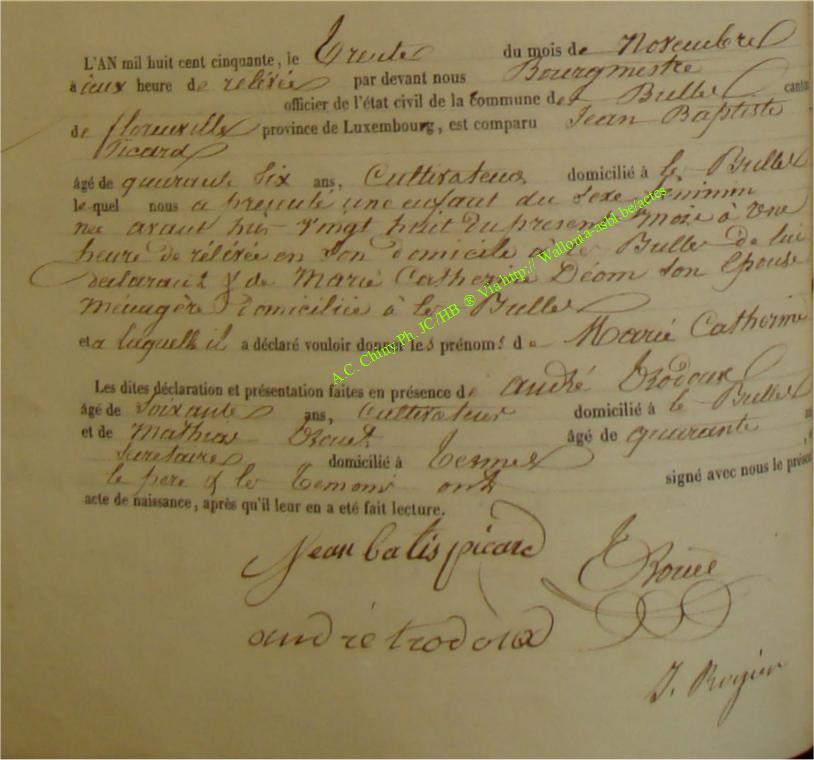 L'AN mil huit cent cinquante, le Trente du mois de Novembre
à deux heure de relévée par devant nous Bourgmestre
officier de l'état civil de la commune de Bulles canton
de florenville province de Luxembourg, est comparu Jean Baptiste
Picard
âgé de quarante Six ans, Cultivateur domicilié à les Bulles
lequel nous a présenté une enfant du Sexe féminin
née avant hier vingt huit du présent Mois à une
heure de relévée en son domicile à les Bulles de lui
déclarant & de Marie Catherine Déom Son Epouse
ménagère domiciliée à les Bulles
et a laquelle il a déclaré vouloir donner les prénoms de Marie Catherine
Les dites déclaration et présentation faites en présence de andré Trodoux
âgé de Soixante ans, Cultivateur domicilié à les Bulles
et de Mathias âgé de quarante
Secretaire domicilié à Termes
le pere & les Temoins ont signé avec nous le présent
acte de naissance, après qu'il leur en a eté fait lecture.
Jean batis picard
andré trodoux
J. Rogier
A.C. Chiny Ph. JC/HB ® Via http:// Wallonia-asbl.be/actes